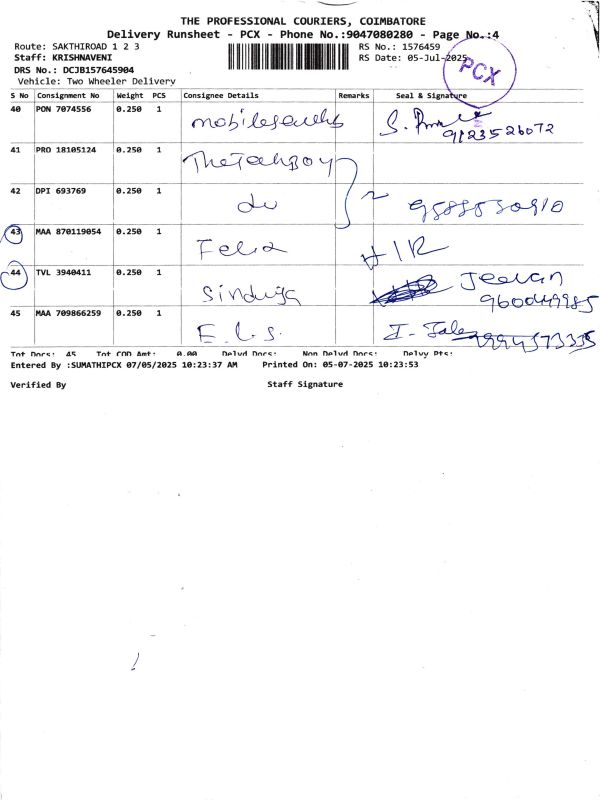 THE PROFESSIONAL COURIERS, COIMBATORE
Delivery Runsheet - PCX - Phone No.:9047080280 - Page No.:4
Route: SAKTHIROAD 1 2 3
RS No.: 1576459
Staff: KRISHNAVENI
RS Date: 05-Jul-2025
DRS No.: DCJB157645904
PCX
Vehicle: Two Wheeler Delivery
S No Consignment No Weight PCS Consignee Details Remarks Seal & Signature
40 PON 7074556 0.250 1
9123526072
41 PRO 18105124 0.250 1 TheTechboy
42 DPI 693769 0.250 1 do
43 MAA 870119054 0.250 1 Felix H/R
44 TVL 3940411 0.250 1 Sinduja Jeevan
45 MAA 709866259 0.250 1 E.L.S.
Tot Docs: 45 Tot COD Amt: 0.00 Delvd Docs: Non Delvd Docs: Delvy Pts:
Entered By :SUMATHIPCX 07/05/2025 10:23:37 AM Printed On: 05-07-2025 10:23:53
Verified By Staff Signature